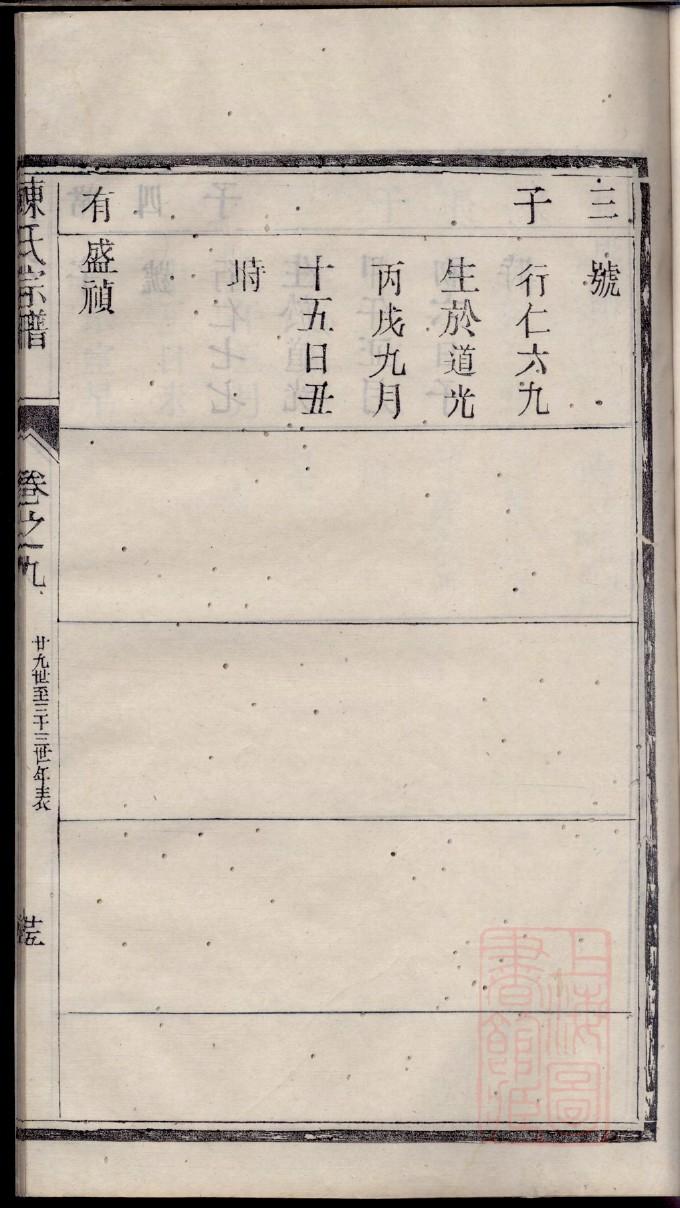 三號
子行仁六九
生於道光
丙戌九月
十五日丑
時
有盛禎
陳氏宗譜
卷之九
廿九世至三十三世年表
上海圖
書館